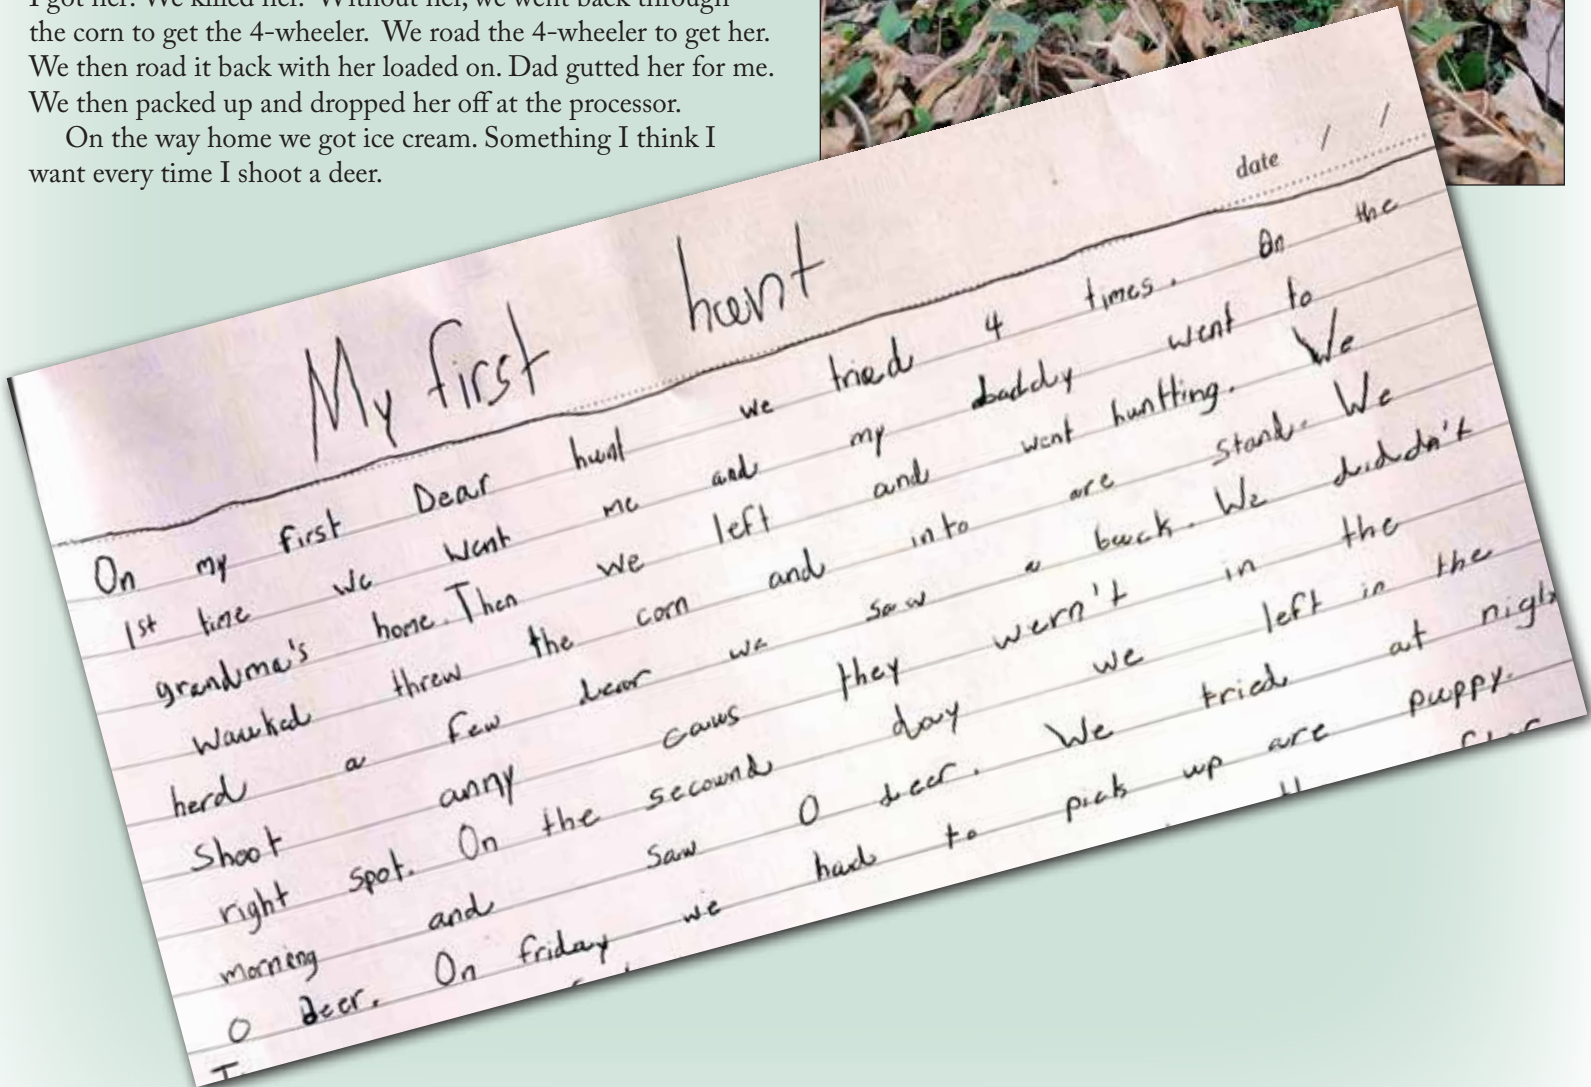 the corn to get the 4-wheeler. We road the 4-wheeler to get her.
We then road it back with her loaded on. Dad gutted her for me.
We then packed up and dropped her off at the processor.
On the way home we got ice cream. Something I think I
want every time I shoot a deer.
date / /
My first hunt
On my first Dear hunt we tried 4 times. On the
1st time we went me and my daddy went to
grandma's home. Then we left and went huntting. We
wauked threw the corn and into are stand. We
herd a few dear we saw a buck. We diddn't
shoot anny caus they wern't in the
right spot. On the secound day we left in the
morning and saw 0 deer. We tried at night
0 deer. On friday we had to pick up are puppy.